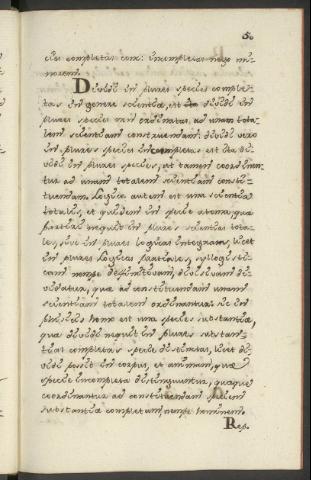 50
cies completas conc: incompletas nego mi-
norem.
Dividi in plures species comple-
tas in genere scientiæ, est ita dividi in
plures species non ordinatas ad unam tota-
lem scientiam constituendam: dividi vero
in plures species incompletas est ita di-
vidi in plures species, ut tamen coordinan-
tur ad unam totalem scientiam consti-
tuendam. Logica autem est una scientia
totalis, et quidem in specie atoma, quæ
partiri nequit in plures scientias tota-
les, sive in plures logicas integras, licet
in plures Logicas partiales, syllogisti-
cam nempe definitivam, divisivam di-
vidatur, quæ ad constituendam unam
scientiam totalem ordinantur: sic in
physicis homo est una species substantiæ,
quæ dividi nequit in plures substan-
tias completas specie distinctas, licet di-
vidi possit in corpus, et animam, quæ
specie incompleta distinguuntur, quæque
coordinantur ad constituendam speciem
substantiæ completam, nempe hominem.
Resp.